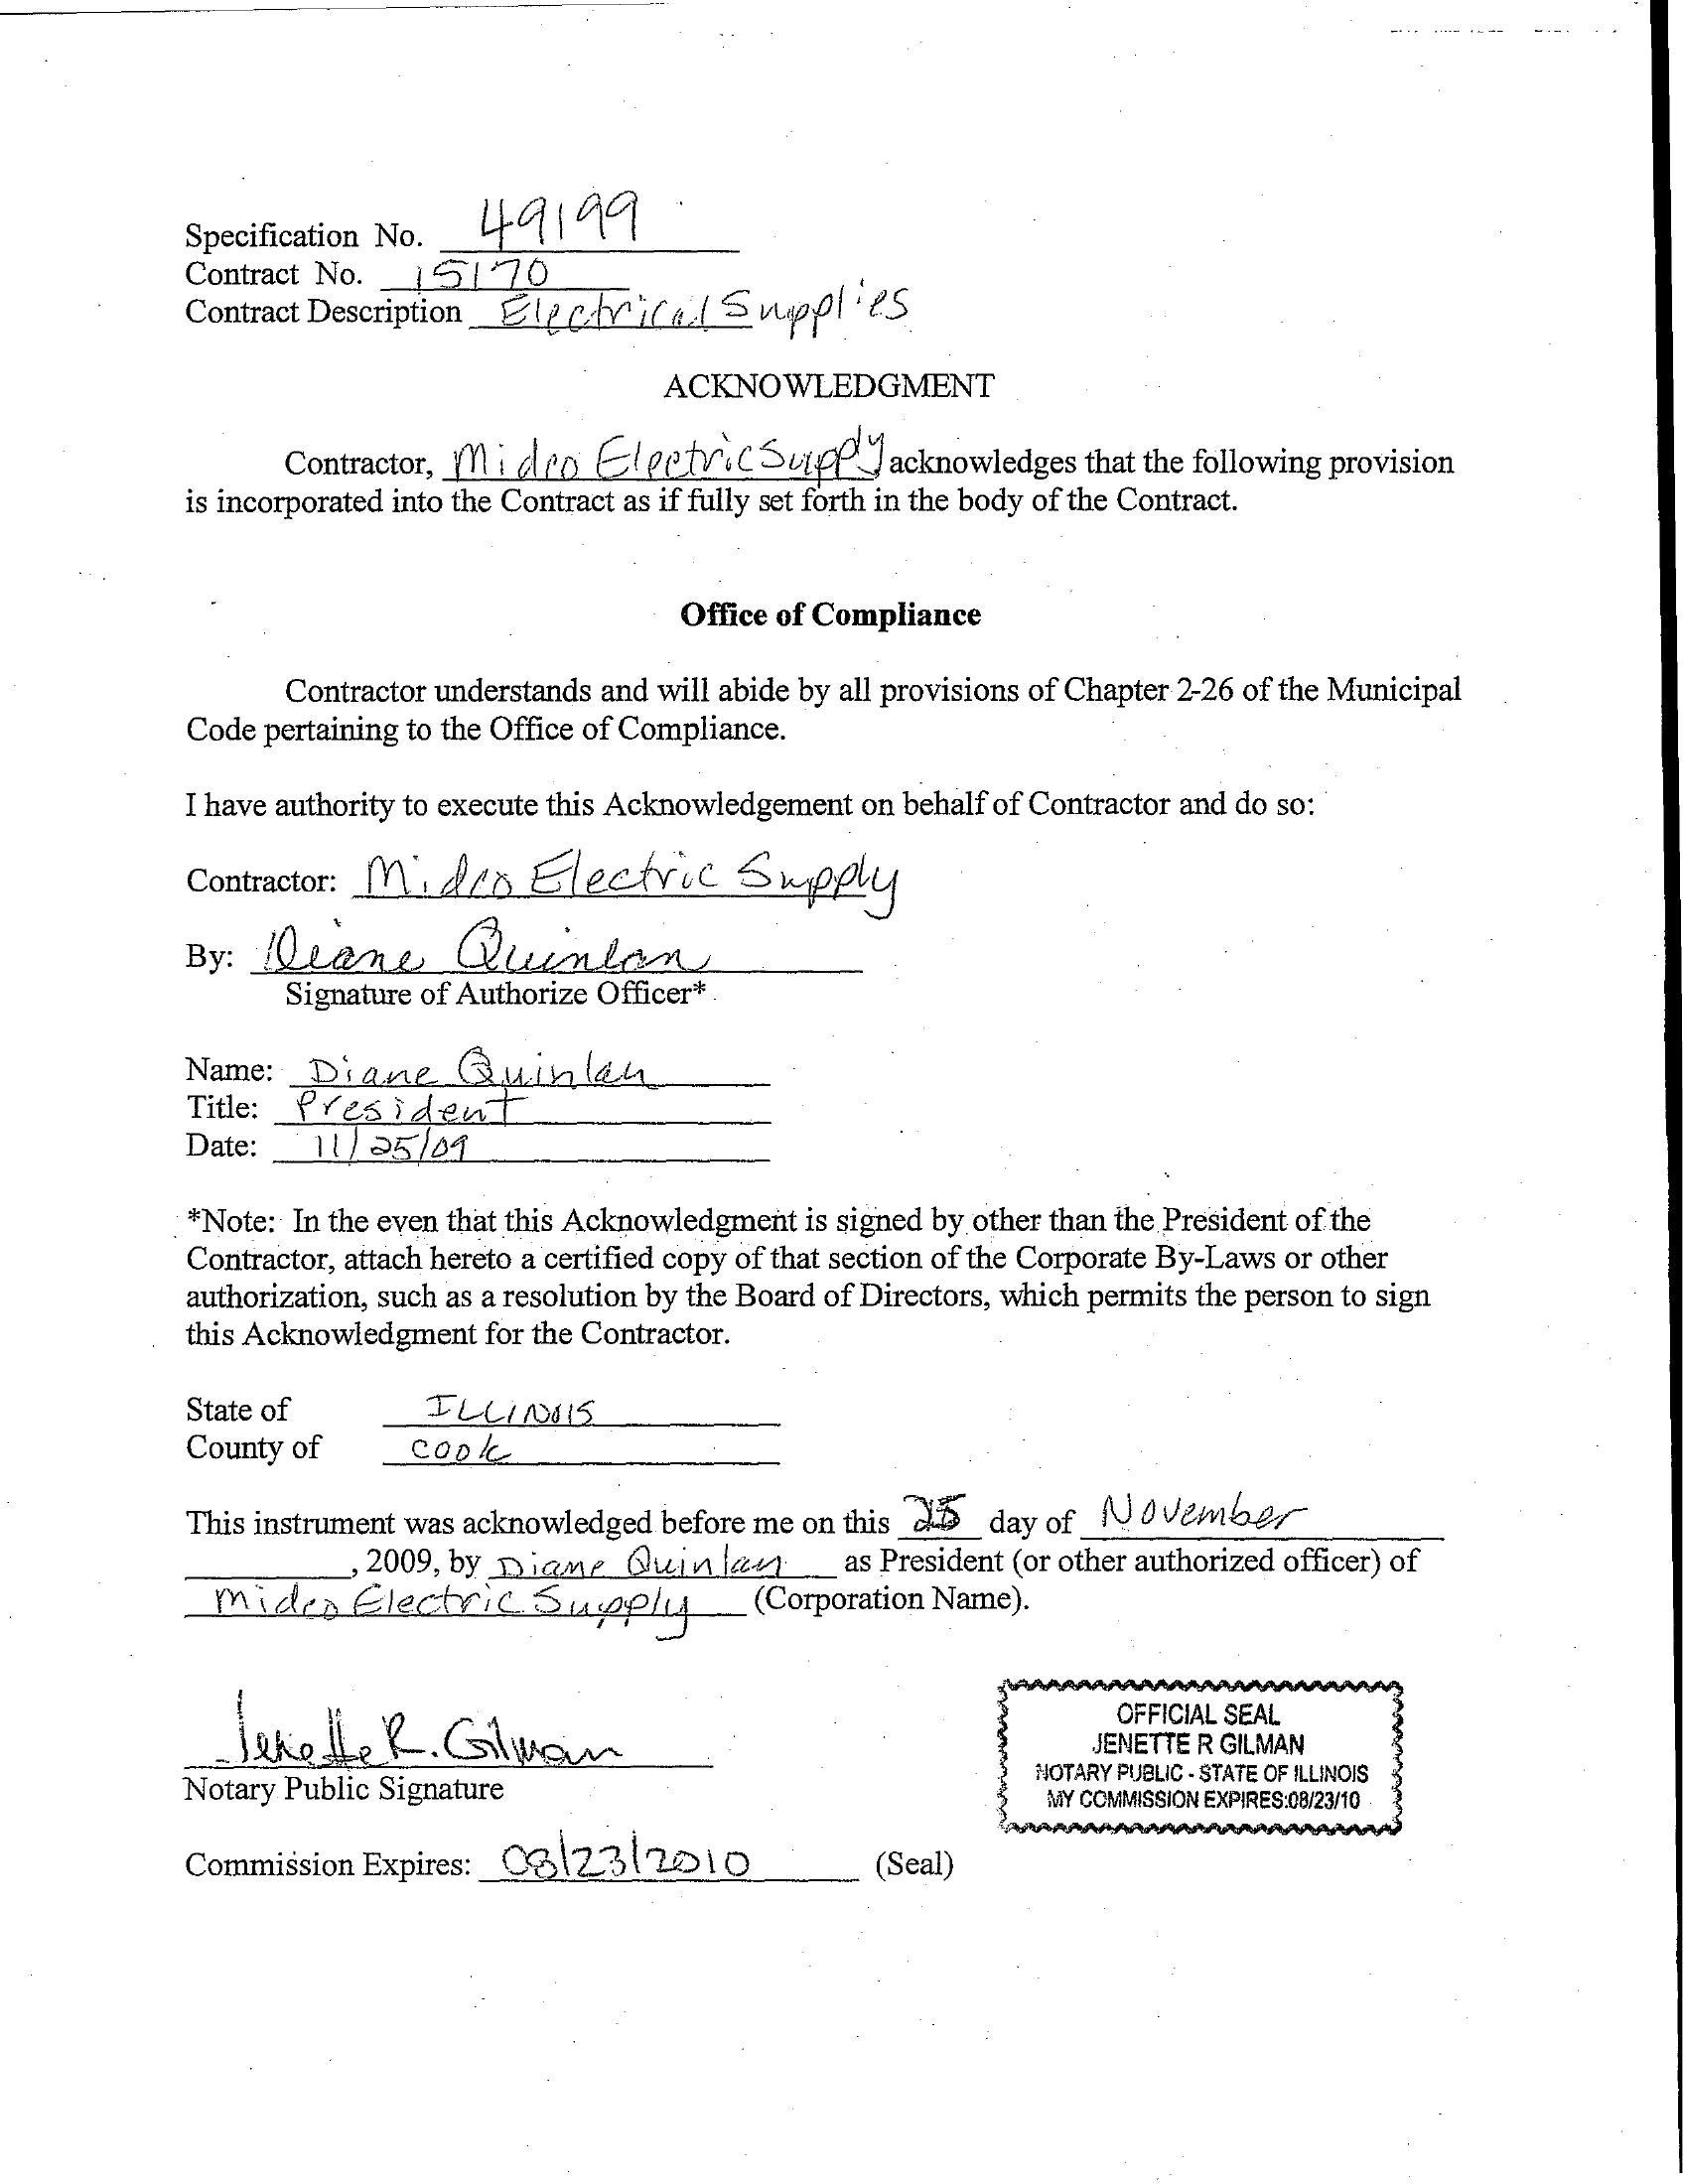 Specification No. 49199
Contract No. 15170
Contract Description Electrical Supplies
ACKNOWLEDGMENT
Contractor, Midco Electric Supply acknowledges that the following provision
is incorporated into the Contract as if fully set forth in the body of the Contract.
Office of Compliance
Contractor understands and will abide by all provisions of Chapter 2-26 of the Municipal
Code pertaining to the Office of Compliance.
I have authority to execute this Acknowledgement on behalf of Contractor and do so:
Contractor: Midco Electric Supply
By: Diane Quinlan
Signature of Authorize Officer*
Name: Diane Quinlan
Title: President
Date: 11/25/09
*Note: In the even that this Acknowledgment is signed by other than the President of the
Contractor, attach hereto a certified copy of that section of the Corporate By-Laws or other
authorization, such as a resolution by the Board of Directors, which permits the person to sign
this Acknowledgment for the Contractor.
State of ILLINOIS
County of COOK
This instrument was acknowledged before me on this 25 day of November
, 2009, by Diane Quinlan as President (or other authorized officer) of
Midco Electric Supply (Corporation Name).
Jenette R. Gilman
Notary Public Signature
OFFICIAL SEAL
JENETTE R GILMAN
NOTARY PUBLIC - STATE OF ILLINOIS
MY COMMISSION EXPIRES:08/23/10
Commission Expires: 08/23/2010 (Seal)